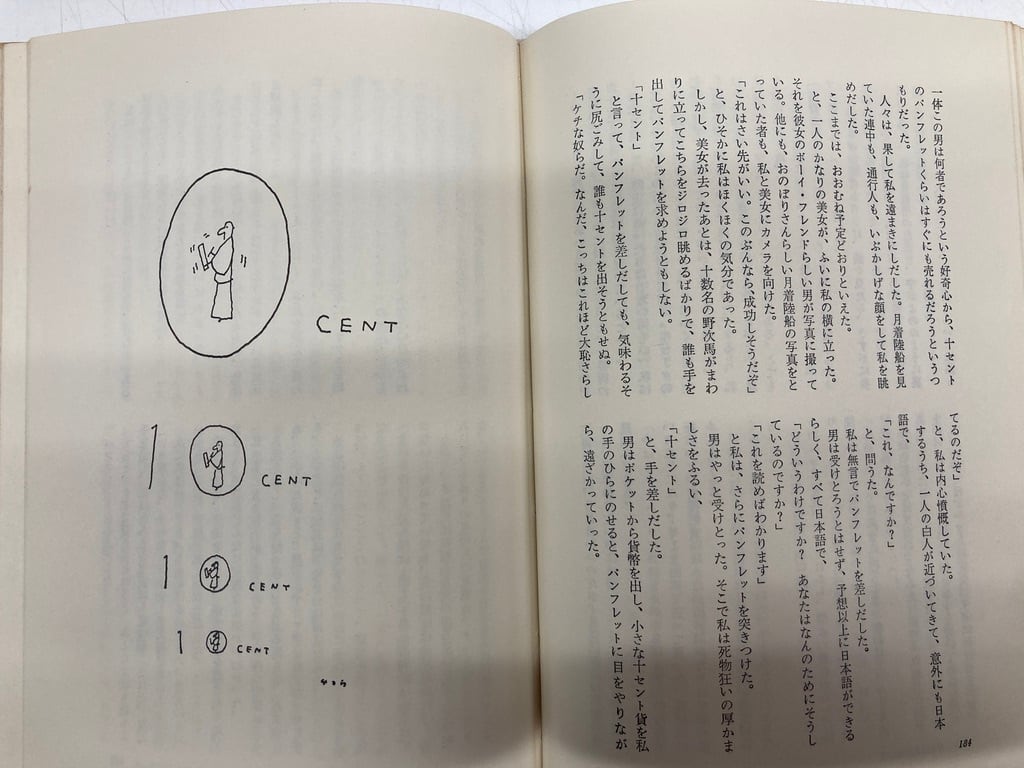 一体この男は何者であろうという好奇心から、十セント
のパンフレットくらいはすぐにも売れるだろうというつ
もりだった。
人々は、果して私を遠まきにしだした。月着陸船を見
ていた連中も、通行人も、いぶかしげな顔をして私を眺
めだした。
ここまでは、おおむね予定どおりといえた。
と、一人のかなりの美女が、ふいに私の横に立った。
それを彼女のボーイ・フレンドらしい男が写真に撮って
いる。他にも、おのぼりさんらしい月着陸船の写真をと
っていた者も、私と美女にカメラを向けた。
「これはさい先がいい。このぶんなら、成功しそうだぞ」
と、ひそかに私はほくほくの気分であった。
しかし、美女が去ったあとは、十数名の野次馬がまわ
りに立ってこちらをジロジロ眺めるばかりで、誰も手を
出してパンフレットを求めようともしない。
「十セント」
と言って、パンフレットを差しだしても、気味わるそ
うに尻ごみして、誰も十セントを出そうともせぬ。
「ケチな奴らだ。なんだ、こっちはこれほど大恥さらし
てるのだぞ」
と、私は内心憤慨していた。
するうち、一人の白人が近づいてきて、意外にも日本
語で、
「これ、なんですか?」
と、問うた。
私は無言でパンフレットを差しだした。
男は受けとろうとはせず、予想以上に日本語ができる
らしく、すべて日本語で、
「どういうわけですか? あなたはなんのためにそうし
ているのですか?」
「これを読めばわかります」
と私は、さらにパンフレットを突きつけた。
男はやっと受けとった。そこで私は死物狂いの厚かま
しさをふるい、
「十セント」
と、手を差しだした。
男はポケットから貨幣を出し、小さな十セント貨を私
の手のひらにのせると、パンフレットに目をやりなが
ら、遠ざかっていった。
184
CENT
1 CENT
1 CENT
1 CENT